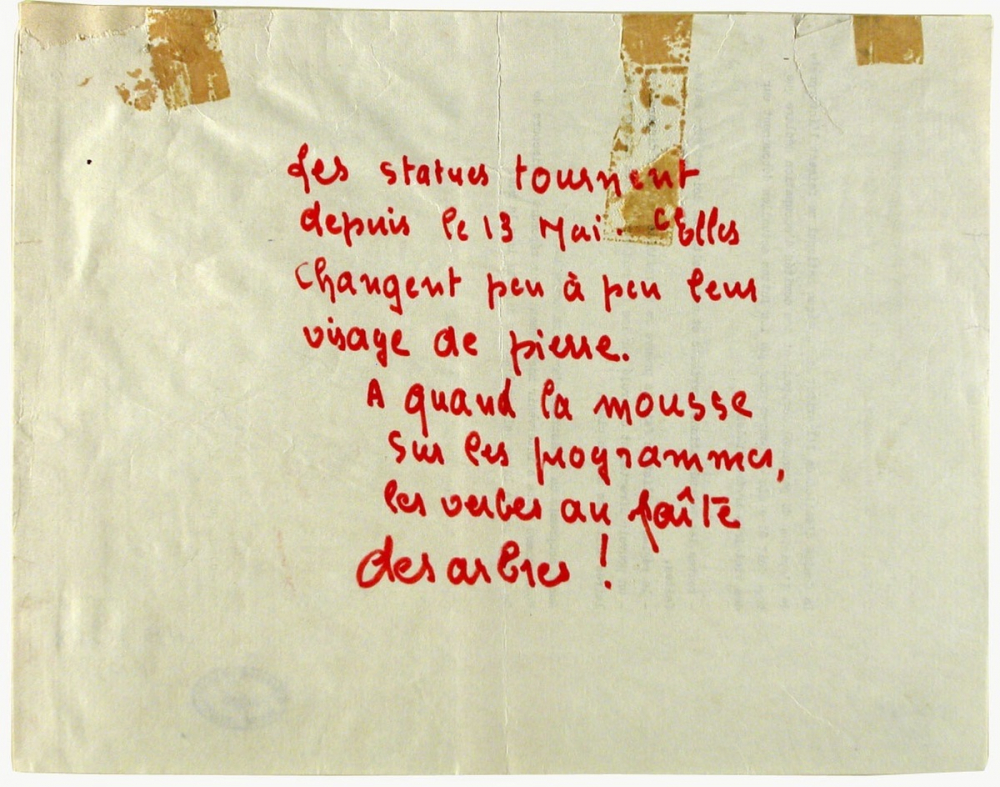 Les statues tournent
depuis le 13 Mai. Elles
changent peu à peu leur
visage de pierre.
A quand la mousse
sur les programmes,
les verbes au faîte
des arbres !